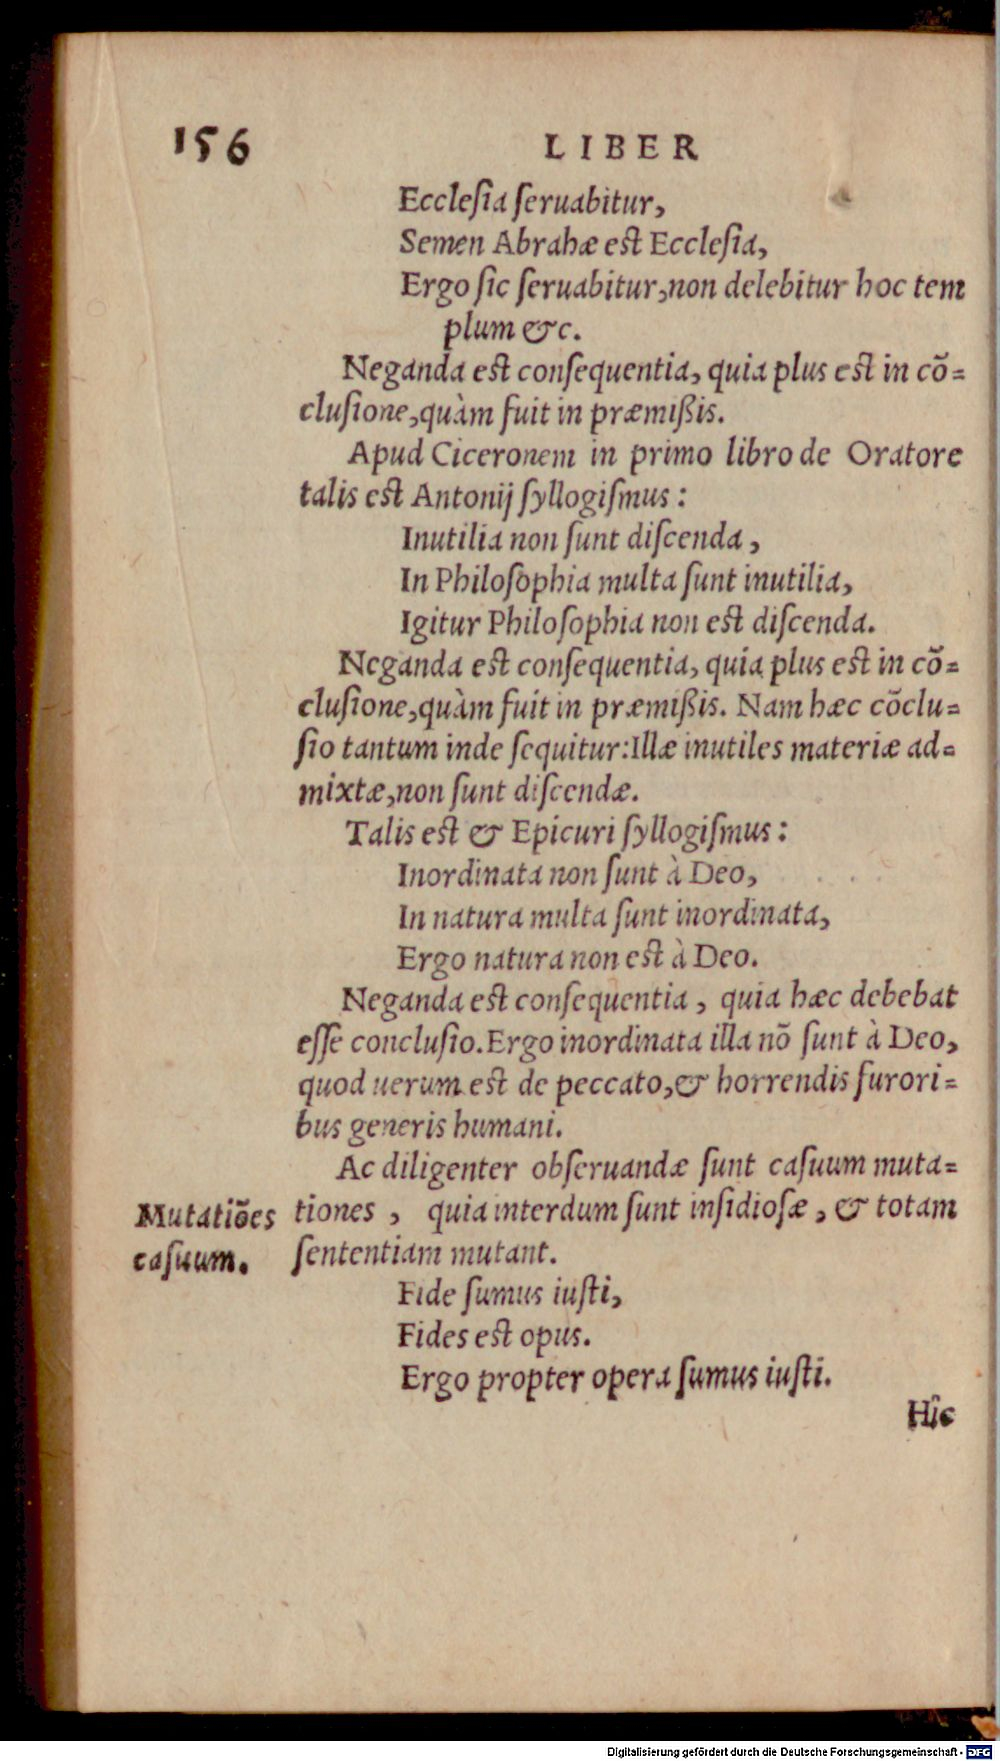 156 LIBER
Eccleſia ſeruabitur,
Semen Abrahæ eſt Eccleſia,
Ergo ſic ſeruabitur,non delebitur hoc tem
plum &c.
Neganda eſt conſequentia, quia plus eſt in cõ=
cluſione,quàm fuit in præmißis.
Apud Ciceronem in primo libro de Oratore
talis eſt Antonij ſyllogiſmus :
Inutilia non ſunt diſcenda ,
In Philoſophia multa ſunt inutilia,
Igitur Philoſophia non eſt diſcenda.
Neganda eſt conſequentia, quia plus eſt in cõ=
cluſione,quàm fuit in præmißis. Nam hæc cõclu=
ſio tantum inde ſequitur:Illæ inutiles materiæ ad=
mixtæ,non ſunt diſcendæ.
Talis eſt & Epicuri ſyllogiſmus :
Inordinata non ſunt à Deo,
In natura multa ſunt inordinata,
Ergo natura non eſt à Deo.
Neganda eſt conſequentia , quia hæc debebat
eſſe concluſio.Ergo inordinata illa nõ ſunt à Deo,
quod uerum eſt de peccato,& horrendis furori=
bus generis humani.
Ac diligenter obſeruandæ ſunt caſuum muta=
Mutatiões tiones , quia interdum ſunt inſidioſæ , & totam
caſuum. ſententiam mutant.
Fide ſumus iuſti,
Fides eſt opus.
Ergo propter opera ſumus iuſti.
Hîc
Digitalisierung gefördert durch die Deutsche Forschungsgemeinschaft - DFG